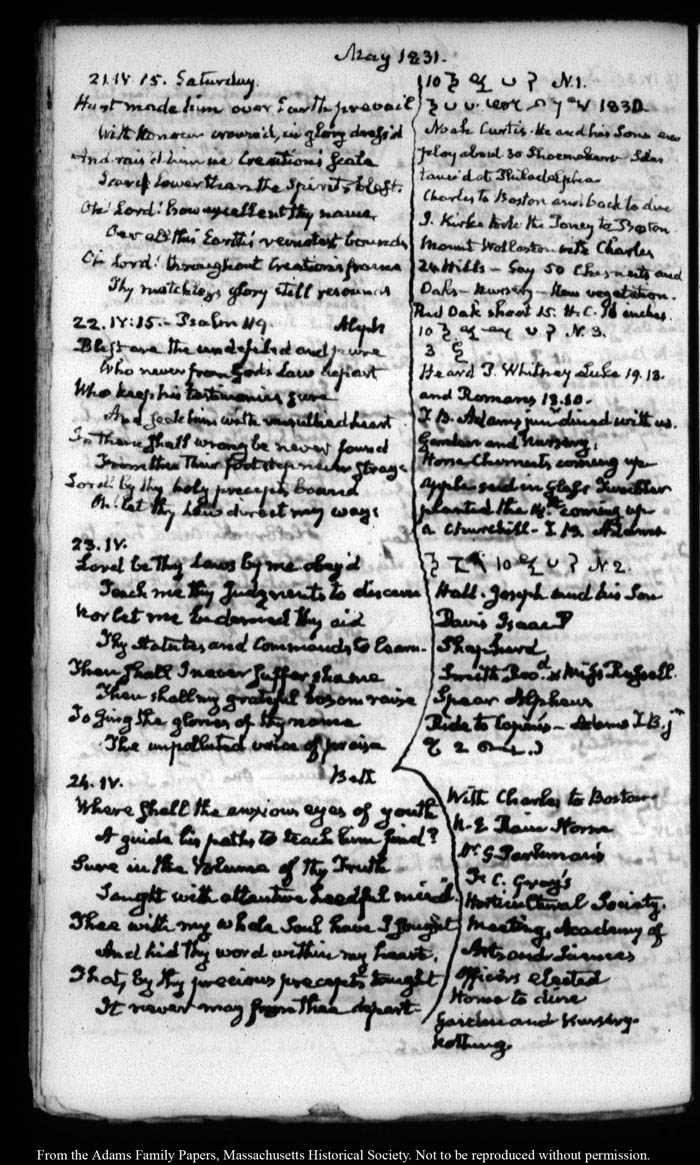 May 1831.
21. IV. 15. Saturday.
Hast made him over Earth prevail
With Honour crown'd, in glory dress'd
And rais'd him in Creation's Scale
Scarce lower than the Spirits blest.
Oh! Lord! how excellent thy name
O'er all this Earth's remotest bounds
Oh Lord! throughout Creation's frame
Thy matchless glory still resounds
22. IV: 15. - Psalm 119. Aleph
Blest are the undefiled and pure
Who never from Gods Law depart
Who keep his testimonies sure
And seek him with unsullied heart
In these shall wrong be never found
From thee Their footsteps never stray
Lord! by thy holy precepts bound
Oh! let thy Law direct my way.
23. IV.
Lord be thy Laws by me obey'd
Teach me thy Judgments to discern
Nor let me be denied thy aid
Thy Statutes and Commands to learn.
Then shall I never suffer shame
Then shall my grateful bosom raise
To sing the glories of thy name
The unpolluted voice of praise
24. IV. Beth
Where shall the anxious eyes of youth
A guide his paths to teach him find?
Sure in the Volume of thy Truth
Taught with attentive heedful mind.
Thee with my whole Soul have I sought
And hid thy word within my heart.
That, by thy precious precepts taught
It never may from thee depart
10 N.1.
1830.
Noah Curtis. He and his Sons em
ploy about 30 Shoemakers
at Philadelphia
Charles to Boston and back to dine
J. Kirke to Boston
Mount Wollaston with Charles
24 Hills - Say 50 Chesnuts and
Oaks - Nursery - New vegetation.
Red Oak shoot 15. H.C. 18 inches.
10 N. 3.
3
Heard T. Whitney Luke 19. 13.
and Romans 13.10.
T. B. Adams junr dined with us.
Garden and nursery.
Horse Chesnuts coming up
Apple seed in Glass Tumbler
planted the 14th coming up
a Churchill - I. H. Adams
10 N 2.
Hall. Joseph and his Son
Davis Isaac P
Shepherd
Smith & Miss Russell
Spear Alpheus
Ride to - Adams T. B. jr
2
With Charles to Boston.
N. E. Rain Storm
Dr. G. Parkman's
F. C. Gray's
Horticultural Society.
Meeting, Academy of
Arts and Sciences
Officers elected
Home to dine
Garden and Nursery.
Nothing.
From the Adams Family Papers, Massachusetts Historical Society. Not to be reproduced without permission.